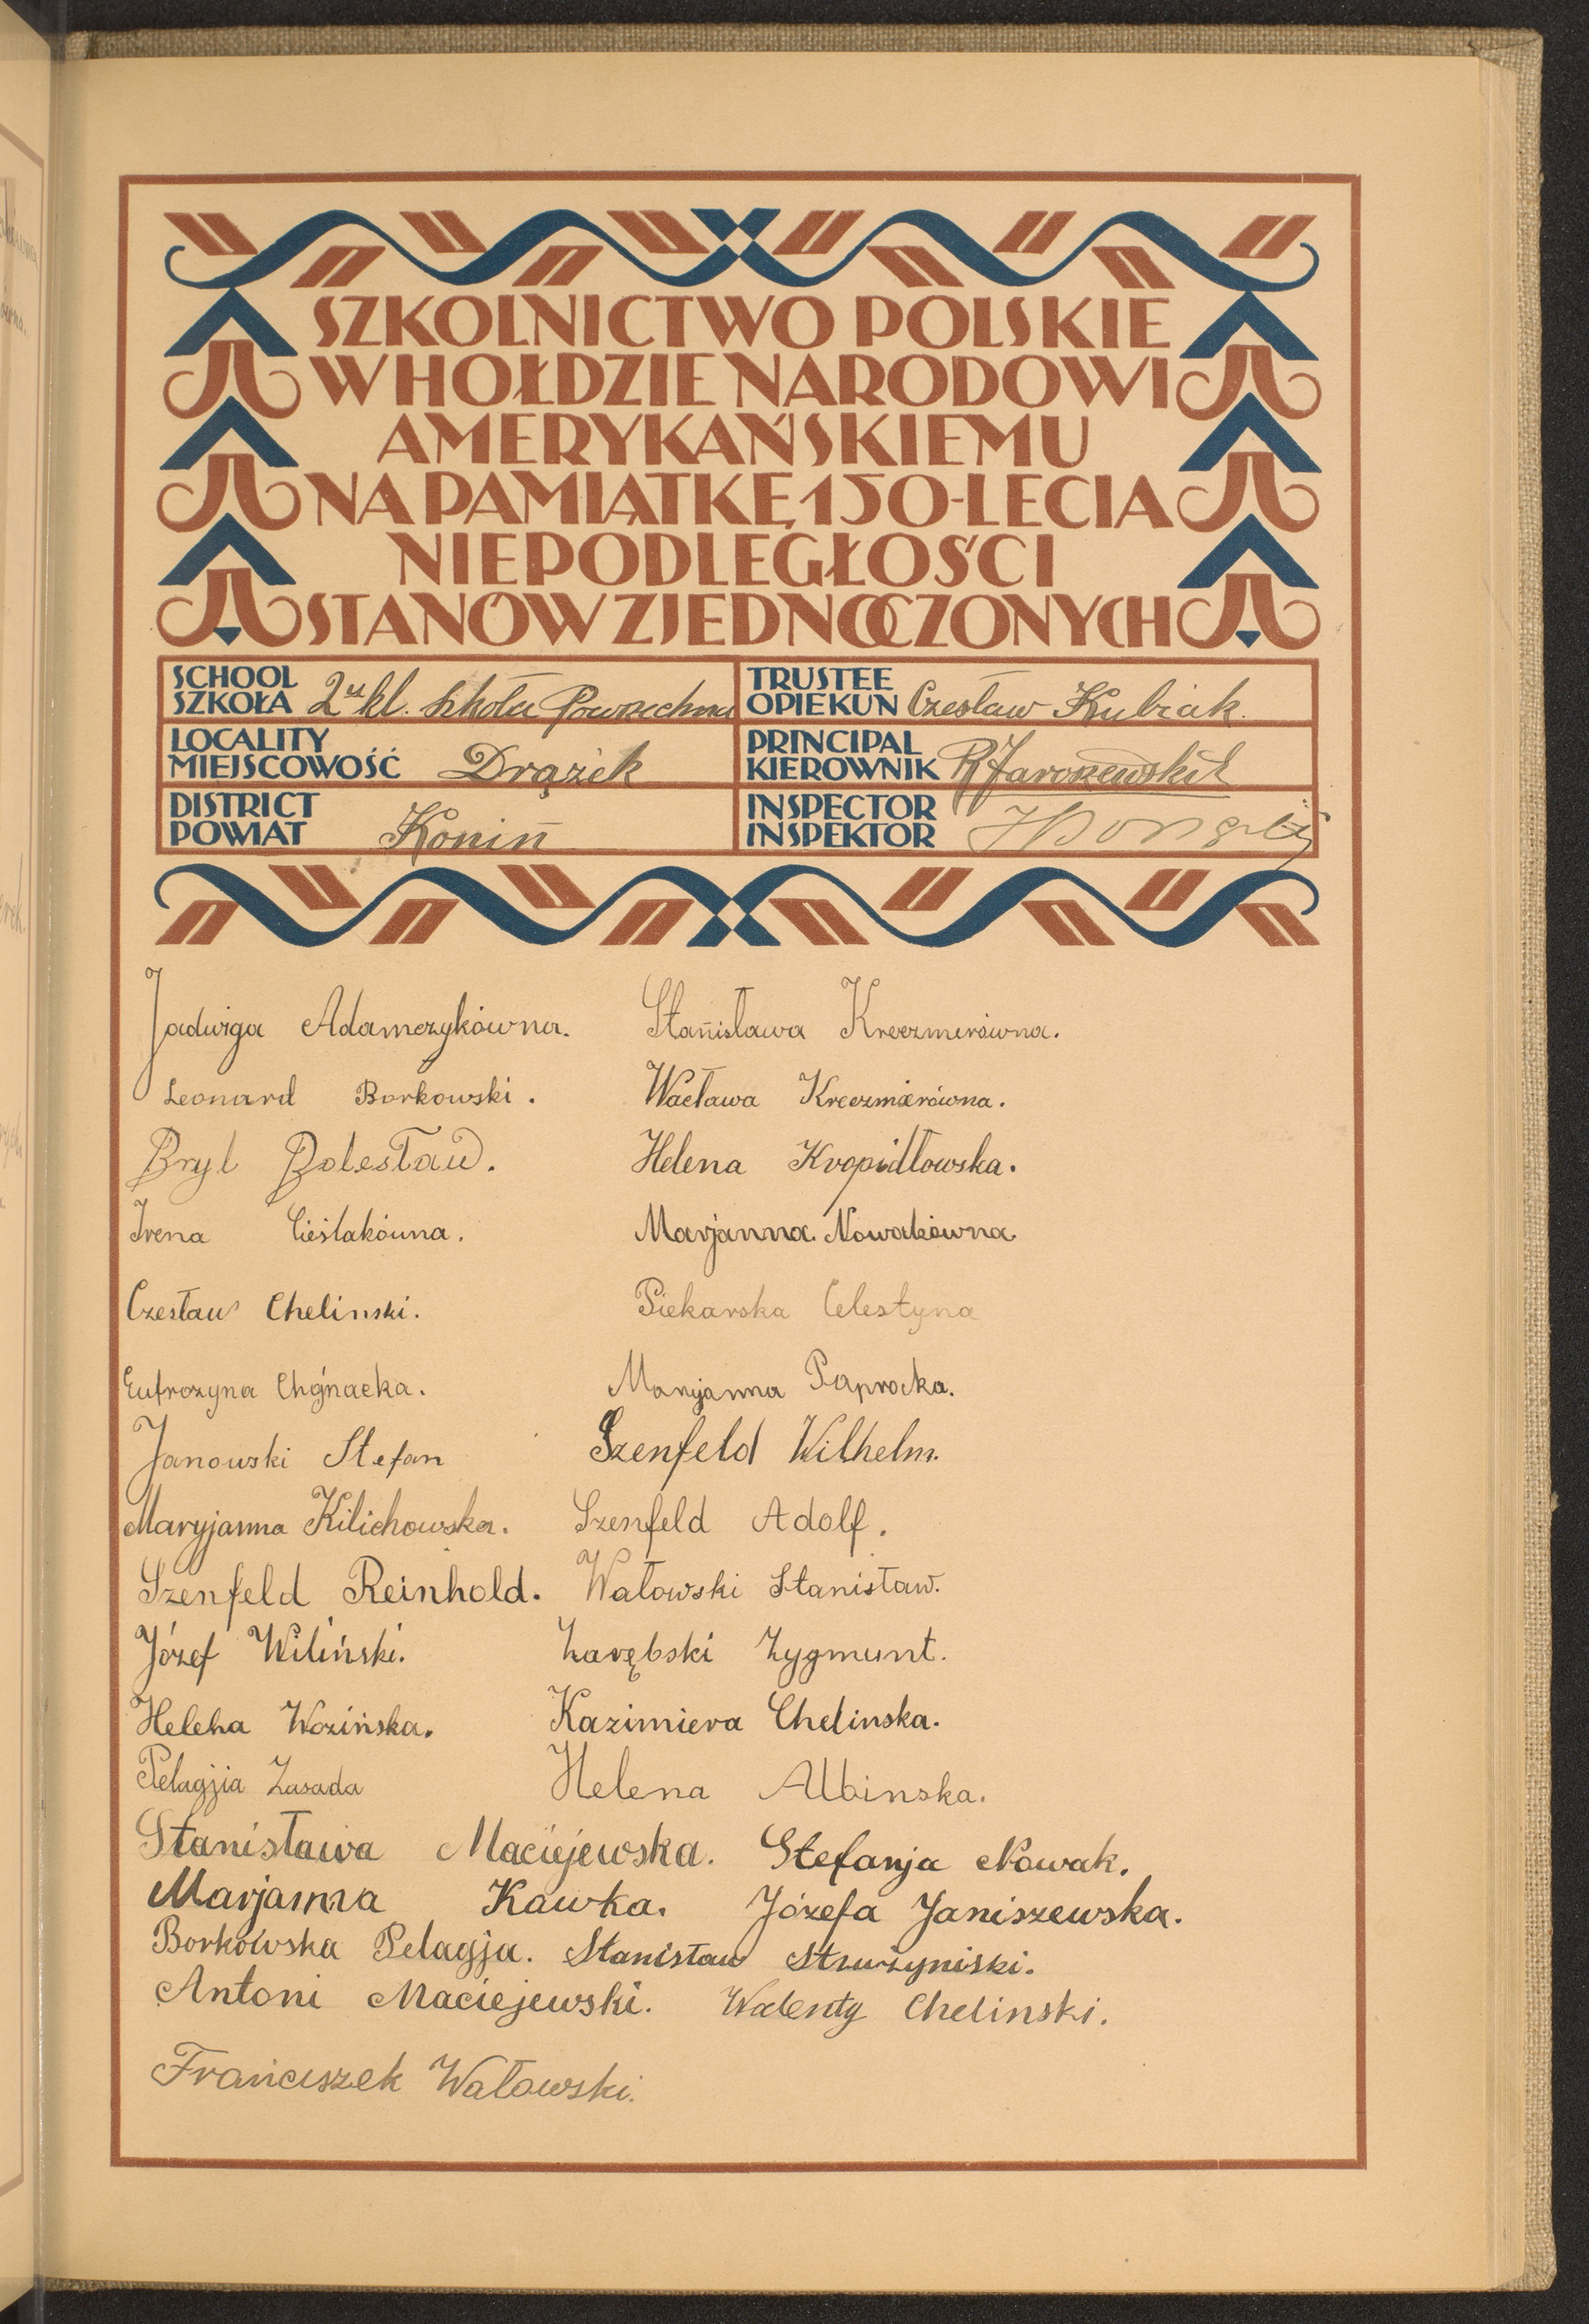 SZKOLNICTWO POLSKIE
W HOŁDZIE NARODOWI
AMERYKAŃSKIEMU
NA PAMIĄTKĘ 150-LECIA
NIEPODLEGŁOŚCI
STANÓW ZJEDNOCZONYCH
SCHOOL
SZKOŁA 2 kl. Szkoła Powszechna
TRUSTEE
OPIEKUN Czesław Kubiak.
LOCALITY
MIEJSCOWOŚĆ Drążek
PRINCIPAL
KIEROWNIK R Jaroszewski
DISTRICT
POWIAT Konin
INSPECTOR
INSPEKTOR
Jadwiga Adamczykówna. Stanisława Kreczmerówna.
Leonard Borkowski. Wacława Kreczmerówna.
Bryl Bolesław. Helena Kropidłowska.
Irena Cieślakówna. Marjanna Nowakówna
Czesław Chelinski. Piekarska Celestyna
Eufrozyna Chojnacka. Maryjanna Paprocka.
Janowski Stefan Szenfeld Wilhelm.
Maryjanna Kilichowska. Szenfeld Adolf.
Szenfeld Reinhold. Wałowski Stanisław.
Józef Wiliński. Zarębski Zygmunt.
Helena Wozińska. Kazimiera Chelinska.
Pelagjia Zasada Helena Albinska.
Stanisława Maciejewska. Stefanja Nowak.
Marjanna Kawka. Józefa Janiszewska.
Borkówska Pelagja. Stanisław Strużyniski.
Antoni Maciejewski. Walenty Chelinski.
Franciszek Wałowski.